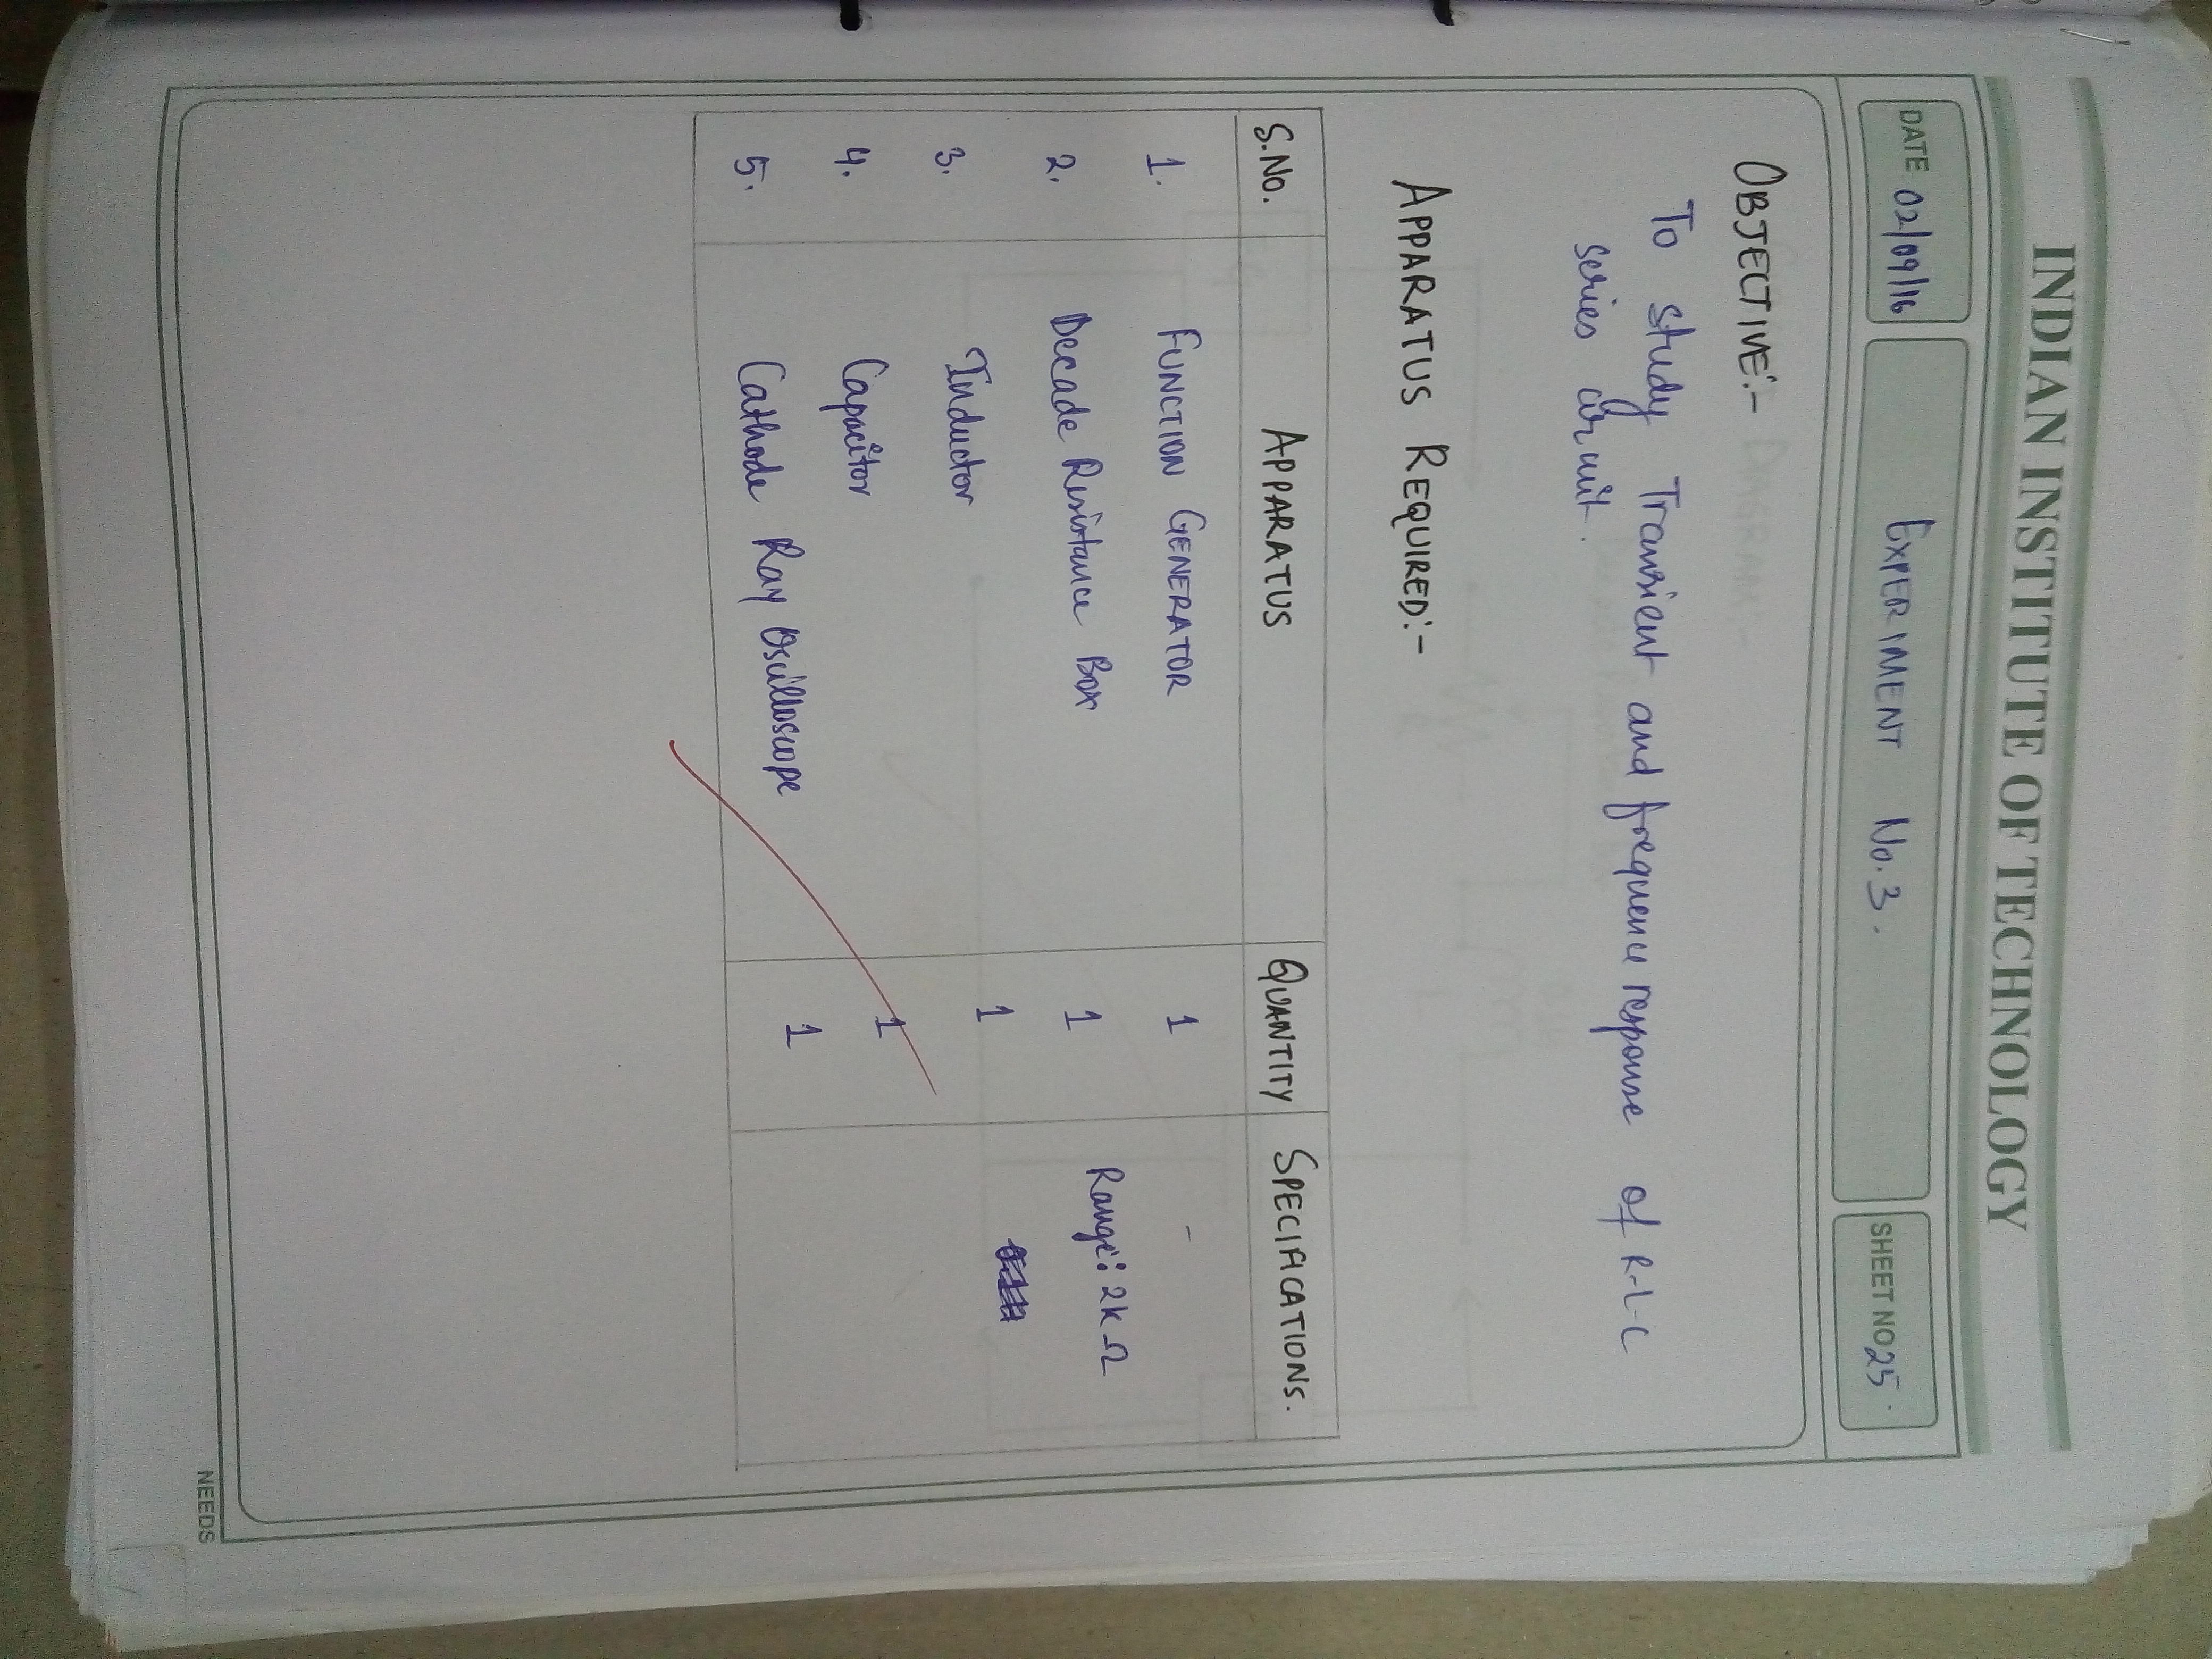 INDIAN INSTITUTE OF TECHNOLOGY
DATE 02/09/16
EXPERIMENT No. 3.
SHEET NO 25
OBJECTIVE:-
To study Transient and frequence response of R-L-C
series circuit.
APPARATUS REQUIRED:-
S.No. APPARATUS QUANTITY SPECIFICATIONS.
1. FUNCTION GENERATOR 1 -
2. Decade Resistance Box 1 Range: 2k Ω
3. Inductor 1
4. Capacitor 1
5. Cathode Ray Oscilloscope 1
NEEDS